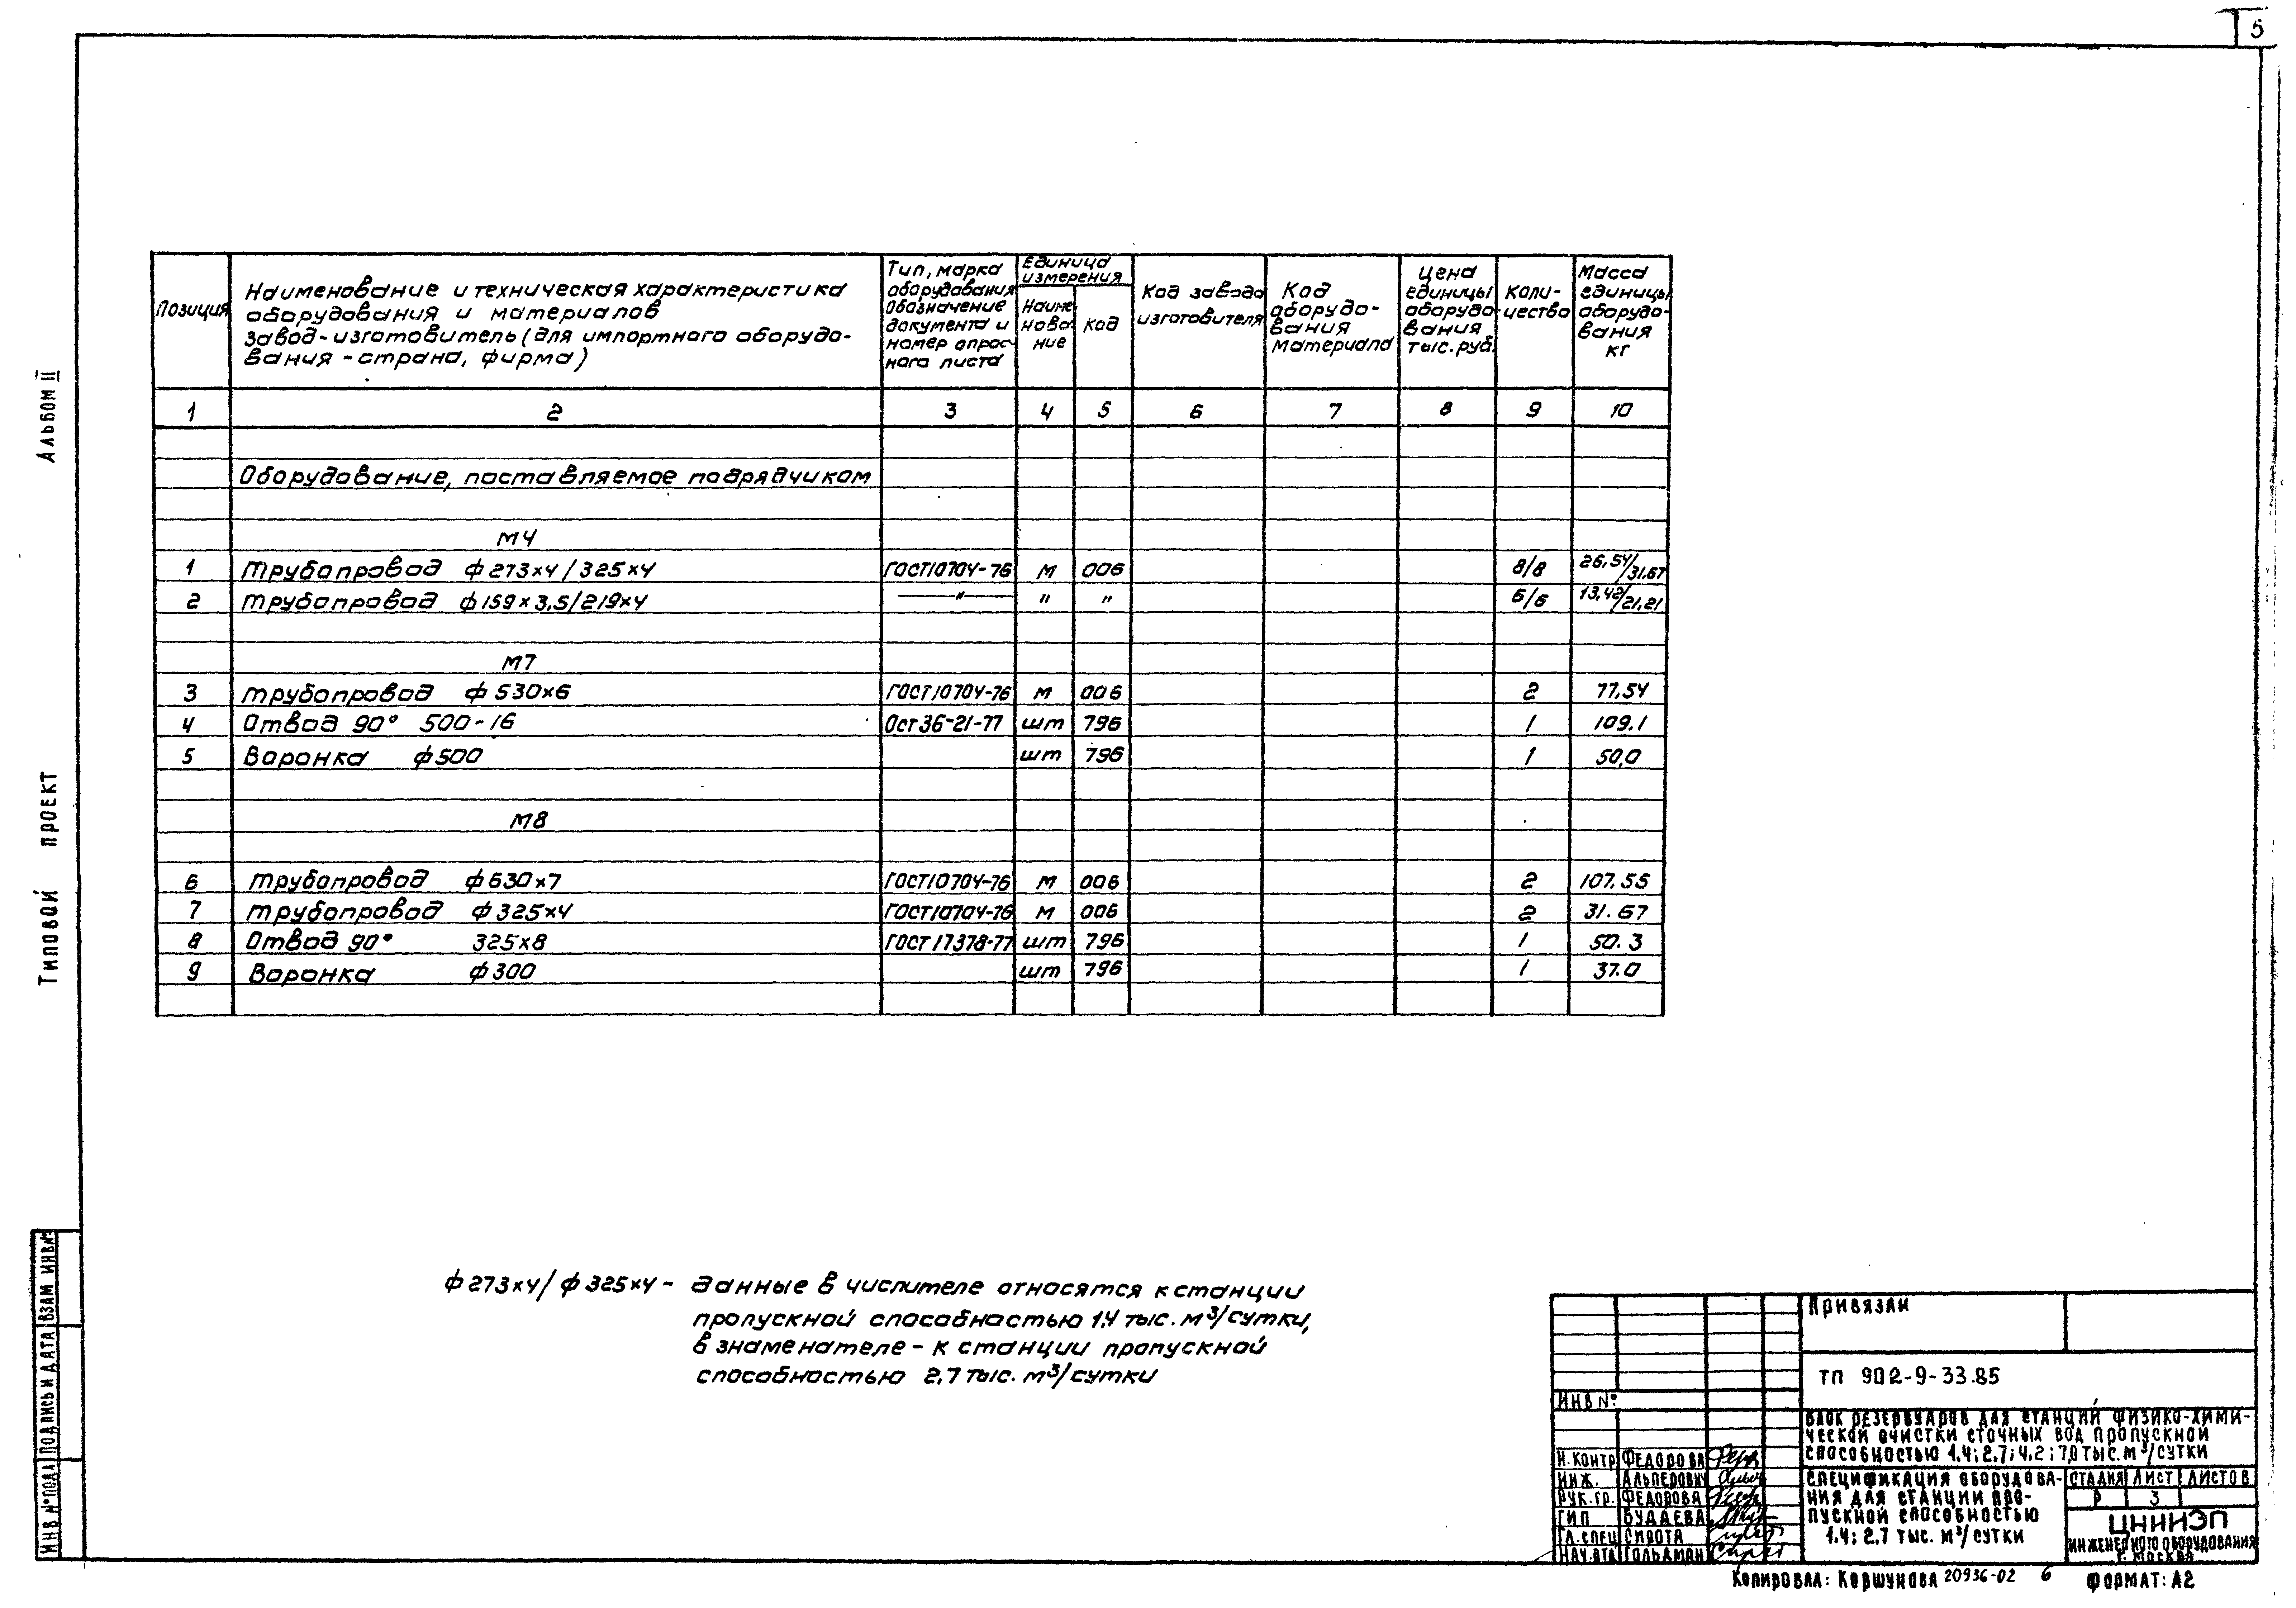 5
Альбом II
Типовой проект
Позиция
Наименование и техническая характеристика
оборудования и материалов
завод-изготовитель (для импортного оборудо-
вания - страна, фирма)
Тип, марка
оборудования
обозначение
документа и
номер опрос-
ного листа
Единица
измерения
Наиме-
нова
ние
код
Код завода
изготовителя
Код
оборудо-
вания
материала
Цена
единицы
оборудо
вания
тыс. руб.
Коли-
чество
Масса
единицы
оборудо-
вания
кг
1 2 3 4 5 6 7 8 9 10
Оборудование, поставляемое подрядчиком
М4
1 Трубопровод ф 273×4 / 325×4 ГОСТ10704-76 м 006 8/8 26,54/31,67
2 Трубопровод ф 159×3,5/219×4 —"— " " 6/6 13,42/21,21
М7
3 Трубопровод ф 530×6 ГОСТ10704-76 м 006 2 77.54
4 Отвод 90° 500-16 Ост 36-21-77 шт 796 1 109.1
5 Воронка ф500 шт 796 1 50,0
М8
6 Трубопровод ф630×7 ГОСТ10704-76 м 006 2 107.55
7 Трубопровод ф325×4 ГОСТ10704-76 м 006 2 31.67
8 Отвод 90° 325×8 ГОСТ 17378-77 шт 796 1 50.3
9 Воронка ф300 шт 796 1 37.0
ф 273×4/ ф 325×4 - данные в числителе относятся к станции
пропускной способностью 1,4 тыс. м³/сутки,
в знаменателе - к станции пропускной
способностью 2,7 тыс. м³/сутки
Инв № подл Подпись и дата Взам инв №
Привязан
Инв №
ТП 902-9-33.85
Блок резервуаров для станций физико-хими-
ческой очистки сточных вод пропускной
способностью 1.4; 2.7; 4.2; 7,0 тыс. м³/сутки
Н.контр Федорова
Инж. Альперович
Рук. гр. Федорова
ГИП Будаева
Гл. спец Сирота
Нач. отд Гольдман
Спецификация оборудова-
ния для станции про-
пускной способностью
1.4; 2.7 тыс. м³/сутки
Стадия Лист Листов
Р 3
ЦНИИЭП
инженерного оборудования
г. Москва
Копировал: Коршунова 20936-02 6 Формат: А2